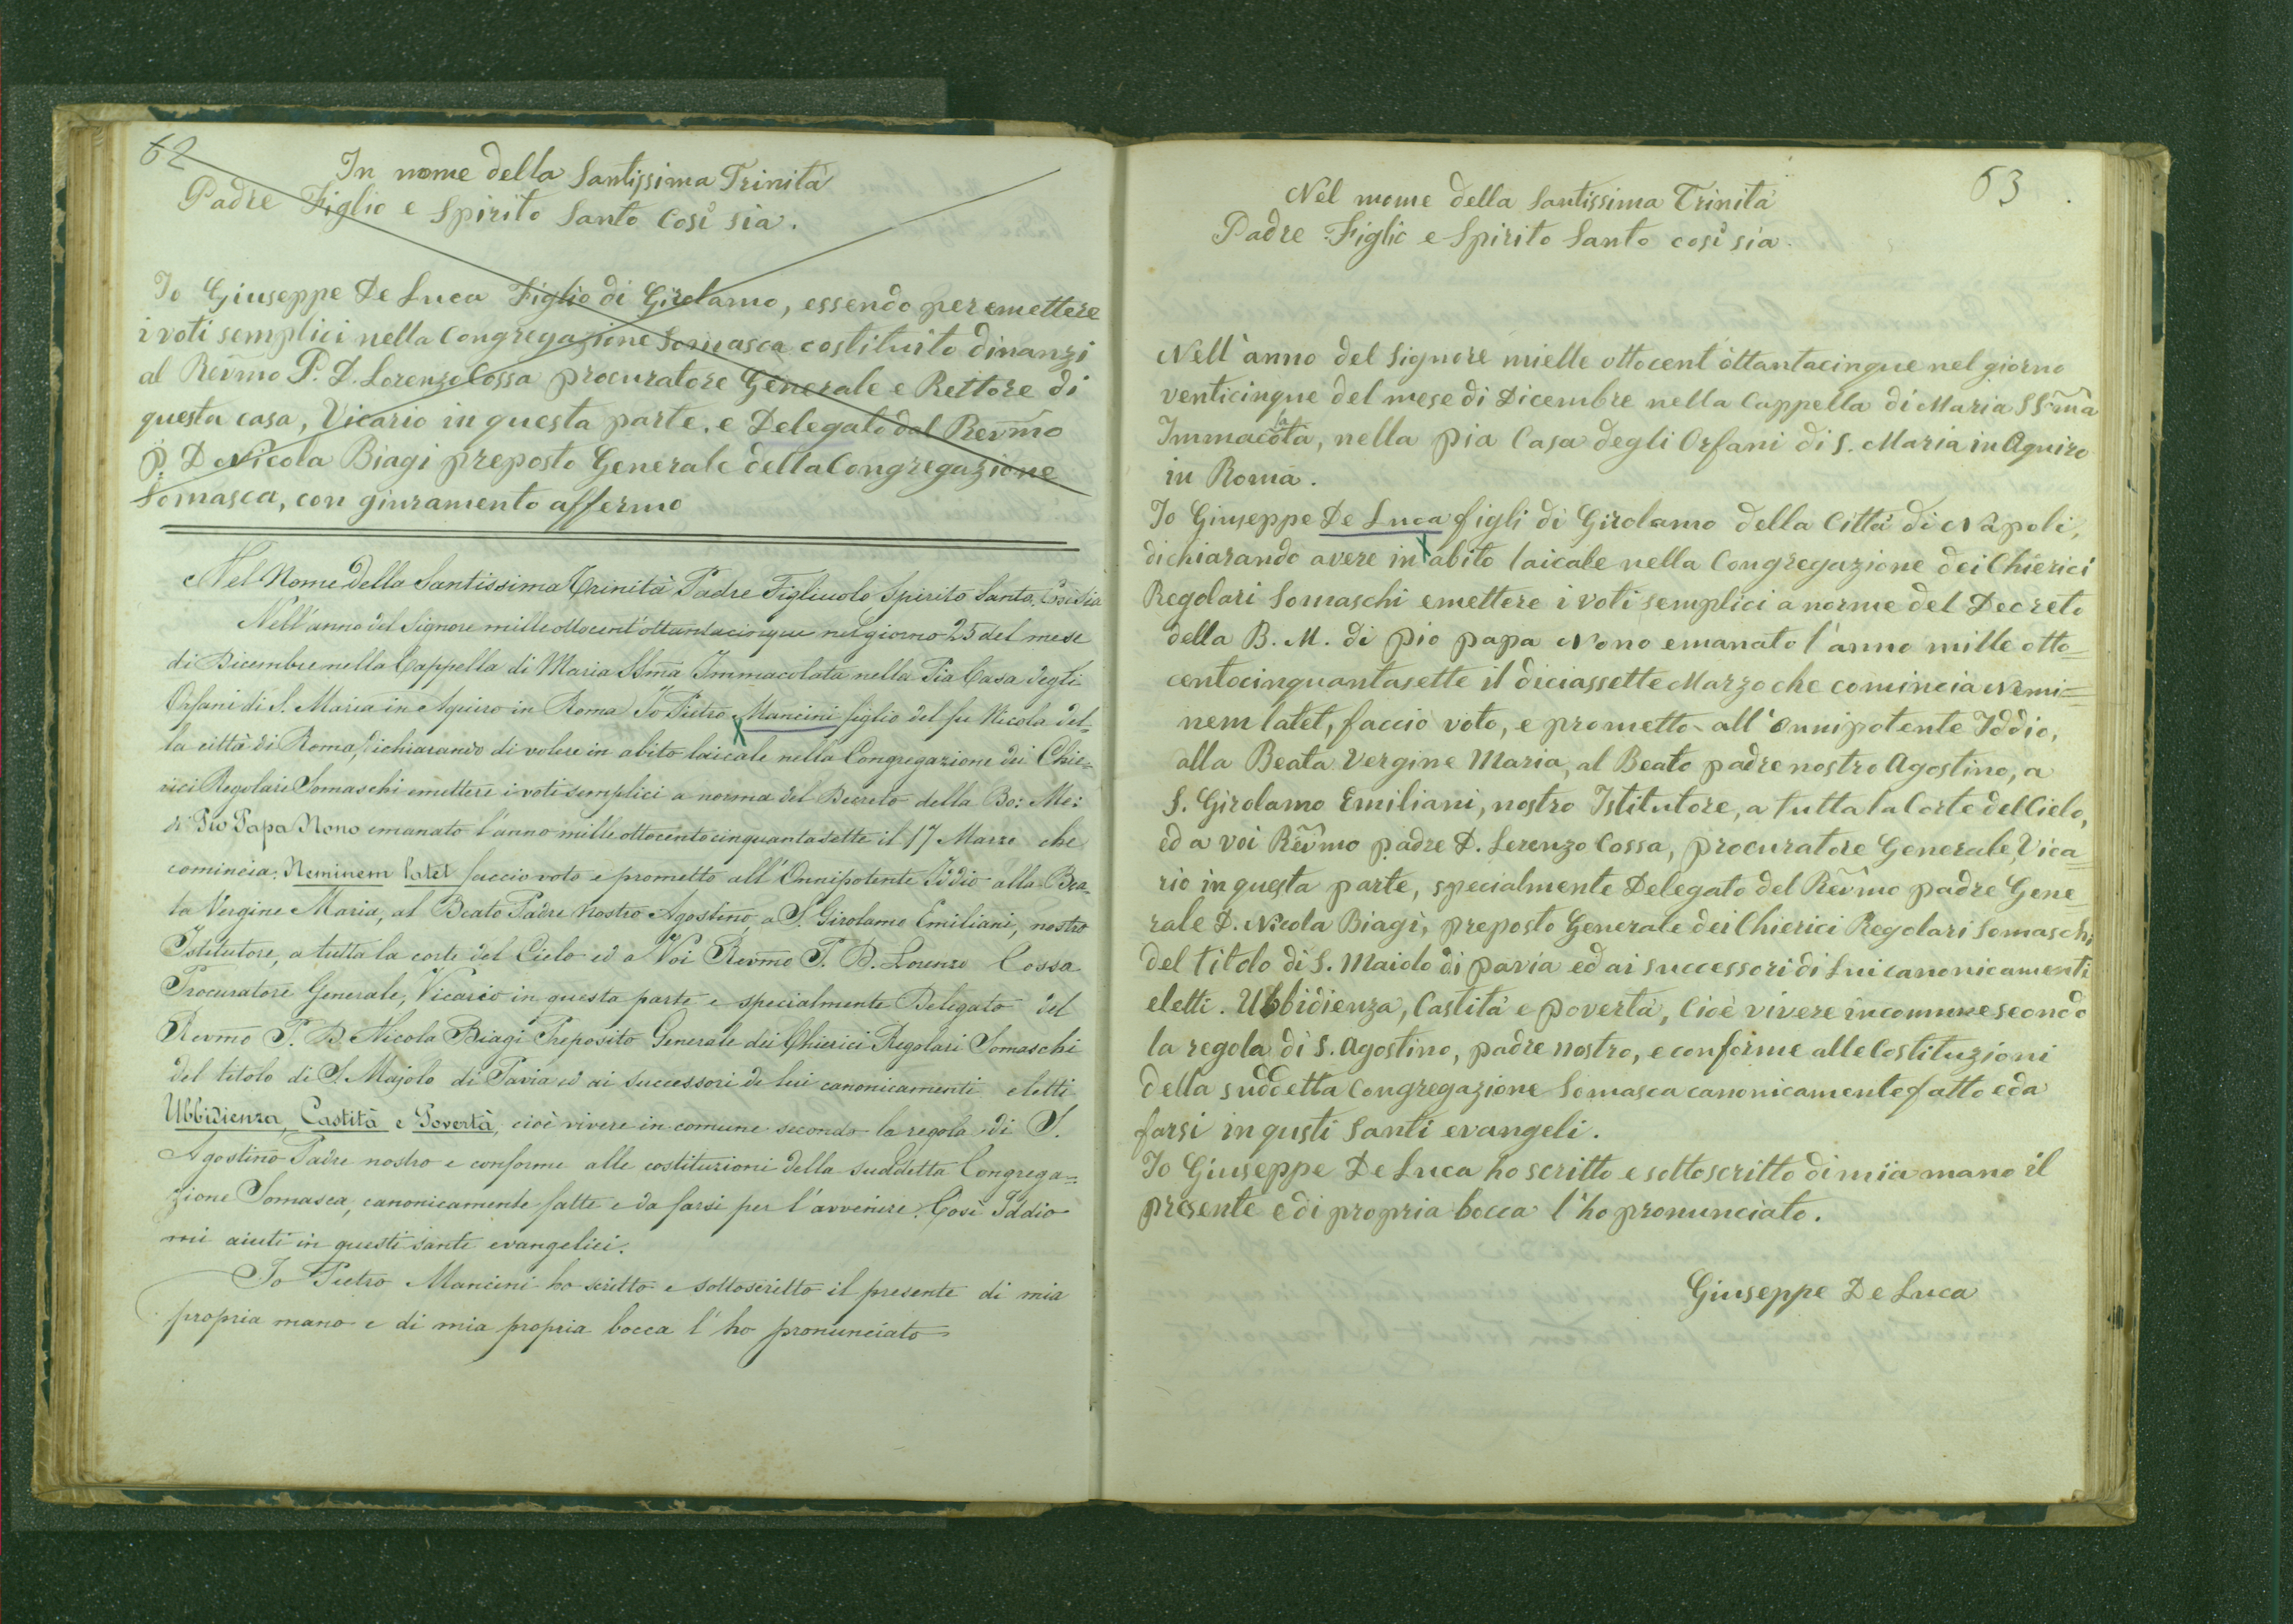 62
In nome della Santissima Trinità
Padre Figlio e Spirito Santo Così sia.
Io Giuseppe De Luca Figlio di Girolamo, essendo per emettere
i voti semplici nella Congregazione Somasca costituito dinanzi
al Revmo P. D. Lorenzo Cossa procuratore Generale e Rettore di
questa casa, Vicario in questa parte, e Delegato dal Revmo
P. D Nicola Biagi preposto Generale della Congregazione
Somasca, con giuramento affermo
Nel Nome della Santissima Trinità Padre Figliuolo Spirito Santo. Così Sia
Nell'anno del Signore mille ottocent'ottantacinque nel giorno 25 del mese
di Dicembre nella Cappella di Maria SSma Immacolata nella Pia Casa degli
Orfani di S. Maria in Aquiro in Roma Io Pietro Mancini figlio del fu Nicola del-
la città di Roma, dichiarando di volere in abito laicale nella Congregazione dei Chie=
rici Regolari Somaschi emettere i voti semplici a norma del Decreto della Bo: Me:
di Pio Papa Nono emanato l'anno mille ottocentocinquantasette il 17 Marzo che
comincia: Neminem latet faccio voto e prometto all'Onnipotente Iddio alla Bea-
ta Vergine Maria, al Beato Padre Nostro Agostino, a S. Girolamo Emiliani, nostro
Istitutore, a tutta la corte del Cielo ed a Voi Revmo P. D. Lorenzo Cossa
Procuratore Generale, Vicario in questa parte e specialmente Delegato del
Revmo P. D. Nicola Biagi Preposito Generale dei Chierici Regolari Somaschi
del titolo di S. Majolo di Pavia ed ai successori di lui canonicamenti eletti
Ubbidienza, Castità e Povertà, cioè vivere in comune secondo la regola di S.
Agostino Padre nostro e conforme alle costituzioni della suddetta Congrega=
zione Somasca, canonicamente fatte e da farsi per l'avvenire. Così Iddio
mi aiuti in questi santi evangelici.
Io Pietro Mancini ho scritto e sottoscritto il presente di mia
propria mano e di mia propria bocca l'ho pronunciato
63
Nel nome della Santissima Trinità
Padre Figlio e Spirito Santo così sia.
Nell'anno del Signore mielle ottocent'ottantacinque nel giorno
venticinque del mese di Dicembre nella Cappella di Maria SSma
Immacolata, nella pia Casa degli Orfani di S. Maria in Aquiro
in Roma.
Io Giuseppe De Luca figli di Girolamo della Città di Napoli,
dichiarando avere in abito laicale nella Congregazione dei Chierici
Regolari Somaschi emettere i voti semplici a norme del Decreto
della B. M. di pio papa Nono emanato l'anno mille otto=
centocinquantasette il diciassette Marzo che comincia Nemi=
nem latet, faccio voto, e prometto all'onnipotente Iddio,
alla Beata Vergine Maria, al Beato padre nostro Agostino, a
S. Girolamo Emiliani, nostro Istitutore, a tutta la Corte del Cielo,
ed a voi Revmo padre D. Lorenzo Cossa, procuratore Generale, Vica
rio in questa parte, specialmente Delegato del Revmo padre Gene
rale D. Nicola Biagi, preposto Generale dei Chierici Regolari Somaschi
del titolo di S. Maiolo di pavia ed ai successori di Lui canonicamenti
eletti. Ubbidienza, Castità e povertà, Cioè vivere in comune seondo
la regola di S. Agostino, padre nostro, e conforme alle Costituzioni
della suddetta Congregazione Somasca canonicamente fatto e da
farsi in qusti Santi evangeli.
Io Giuseppe De Luca ho scritto e sottoscritto di mia mano il
presente e di propria bocca l'ho pronunciato.
Giuseppe De Luca